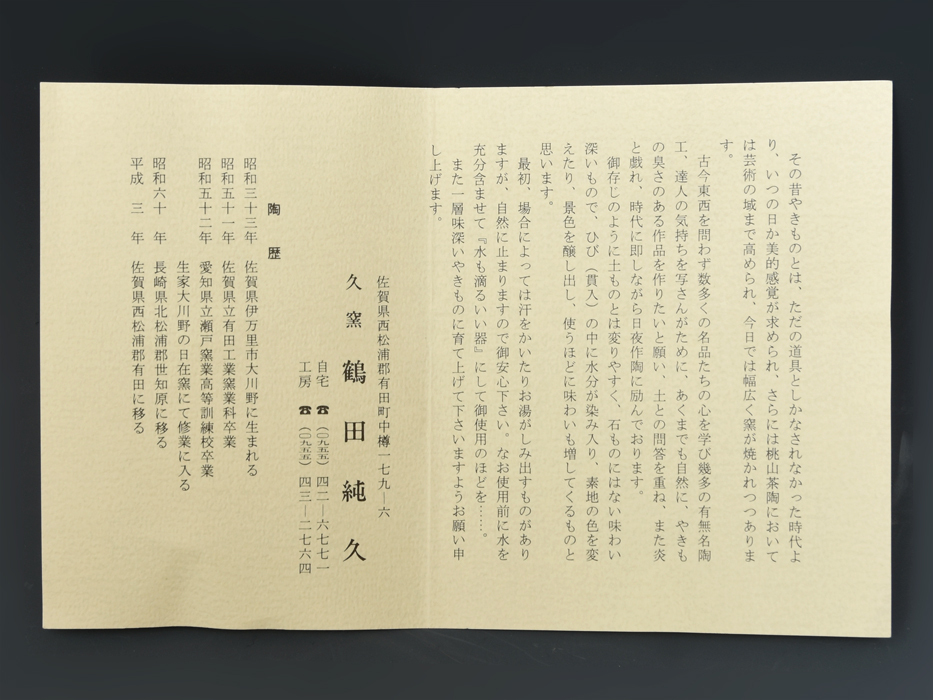 その昔やきものとは、ただの道具としかなされなかった時代よ
り、いつの日か美的感覚が求められ、さらには桃山茶陶において
は芸術の域まで高められ、今日では幅広く窯が焼かれつつありま
す。
古今東西を問わず数多くの名品たちの心を学び幾多の有無名陶
工、達人の気持ちを写さんがために、あくまでも自然に、やきも
の臭さのある作品を作りたいと願い、土との問答を重ね、また炎
と戯れ、時代に即しながら日夜作陶に励んでおります。
御存じのように土ものとは変りやすく、石ものにはない味わい
深いもので、ひび（貫入）の中に水分が染み入り、素地の色を変
えたり、景色を醸し出し、使うほどに味わいも増してくるものと
思います。
最初、場合によっては汗をかいたりお湯がしみ出すものがあり
ますが、自然に止まりますので御安心下さい。なお使用前に水を
充分含ませて『水も滴るいい器』にして御使用のほどを……。
また一層味深いやきものに育て上げて下さいますようお願い申
し上げます。
佐賀県西松浦郡有田町中樽一七九―六
久窯 鶴田純久
自宅 ☎（〇九五五）四二―六七七一
工房 ☎（〇九五五）四三―二七六四
陶歴
昭和三十三年 佐賀県伊万里市大川野に生まれる
昭和五十一年 佐賀県立有田工業窯業科卒業
昭和五十二年 愛知県立瀬戸窯業高等訓練校卒業
生家大川野の日在窯にて修業に入る
昭和六十年 長崎県北松浦郡世知原に移る
平成三年 佐賀県西松浦郡有田に移る